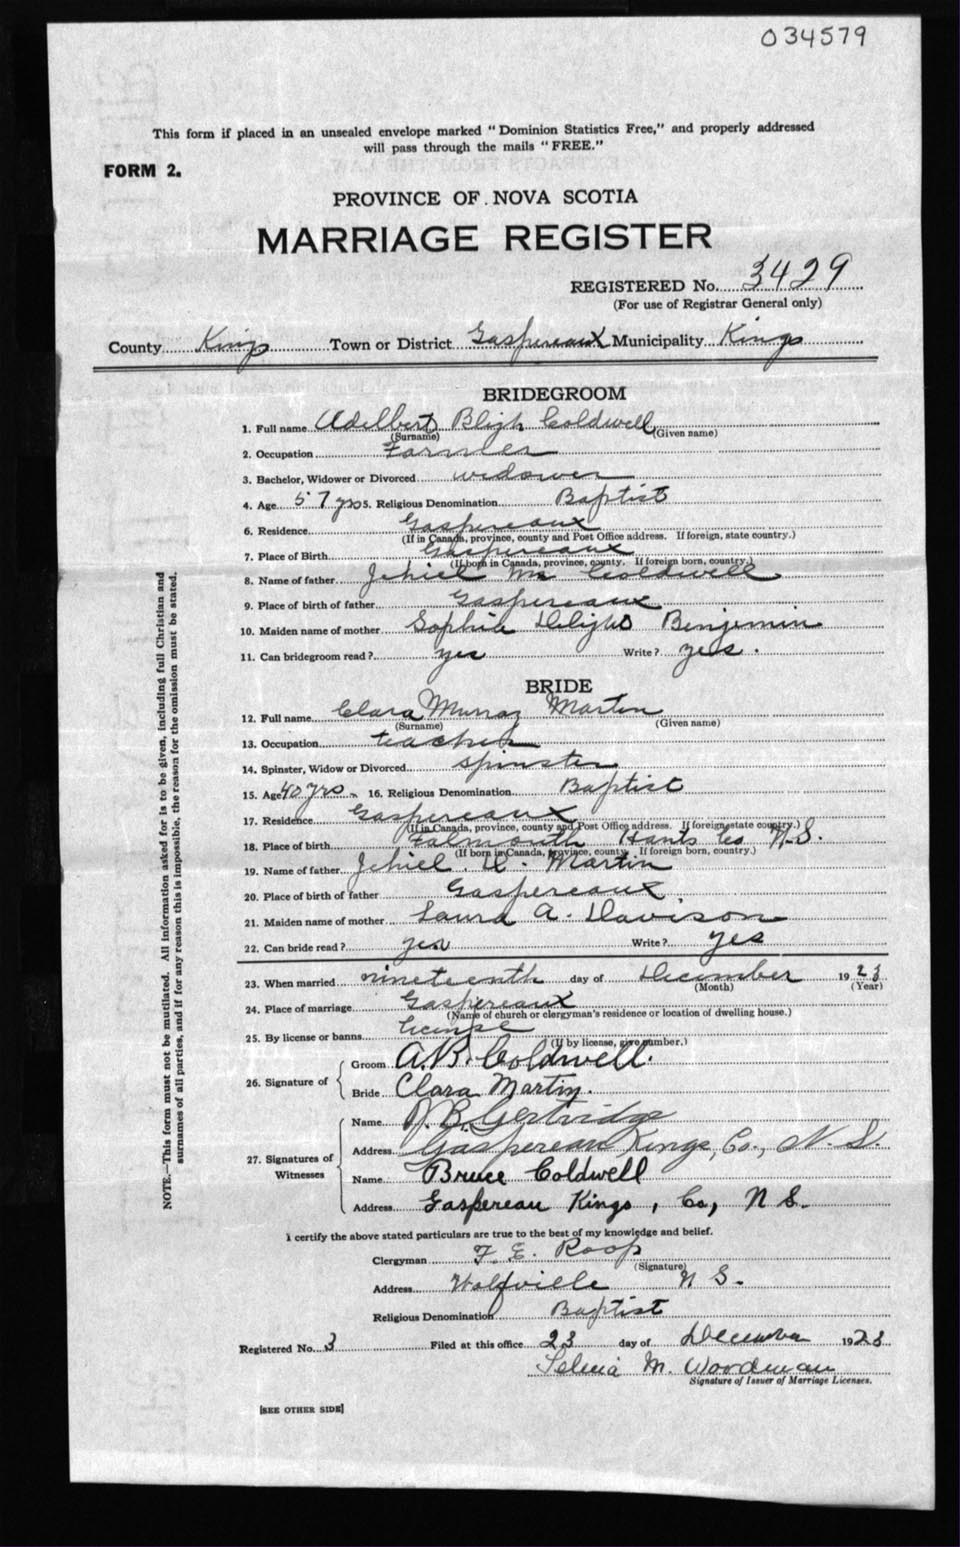 034579
This form if placed in an unsealed envelope marked "Dominion Statistics Free," and properly addressed
will pass through the mails "FREE."
FORM 2.
PROVINCE OF NOVA SCOTIA
MARRIAGE REGISTER
REGISTERED No. 3429
(For use of Registrar General only)
County Kings Town or District Gaspereaux Municipality Kings
BRIDEGROOM
1. Full name Adelbert Bligh Coldwell
(Surname) (Given name)
2. Occupation Farmer
3. Bachelor, Widower or Divorced widower
4. Age 57 yrs 5. Religious Denomination Baptist
6. Residence Gaspereaux
(If in Canada, province, county and Post Office address. If foreign, state country.)
7. Place of Birth Gaspereaux
(If born in Canada, province, county. If foreign born, country.)
8. Name of father Jehiel Coldwell
9. Place of birth of father Gaspereaux
10. Maiden name of mother Sophia Delight Benjemin
11. Can bridegroom read? yes Write? yes.
BRIDE
12. Full name Clara Murray Martin
(Surname) (Given name)
13. Occupation teacher
14. Spinster, Widow or Divorced spinster
15. Age 40 yrs 16. Religious Denomination Baptist
17. Residence Gaspereaux
(If in Canada, province, county and Post Office address. If foreign state country.)
18. Place of birth Falmouth Hants Co N.S.
(If born in Canada, province, county. If foreign born, country.)
19. Name of father Jehiel Martin
20. Place of birth of father Gaspereaux
21. Maiden name of mother Laura A. Davison
22. Can bride read? yes Write? yes
23. When married nineteenth day of December 1923
(Month) (Year)
24. Place of marriage Gaspereaux
(Name of church or clergyman's residence or location of dwelling house.)
25. By license or banns license
(If by license, give number.)
26. Signature of
Groom A. B. Coldwell.
Bride Clara Martin.
27. Signatures of Witnesses
Name B. Gertridge
Address Gaspereau Kings Co., N. S.
Name Bruce Coldwell
Address Gaspereau Kings, Co, N S.
I certify the above stated particulars are true to the best of my knowledge and belief.
Clergyman F. E. Roop
(Signature)
Address Wolfville N S.
Religious Denomination Baptist
Registered No. 3 Filed at this office 23 day of December 1923
Selena M. Woodman
Signature of Issuer of Marriage Licenses.
[SEE OTHER SIDE]
NOTE.—This form must not be mutilated. All information asked for is to be given, including full Christian and
surnames of all parties, and if for any reason this is impossible, the reason for the omission must be stated.